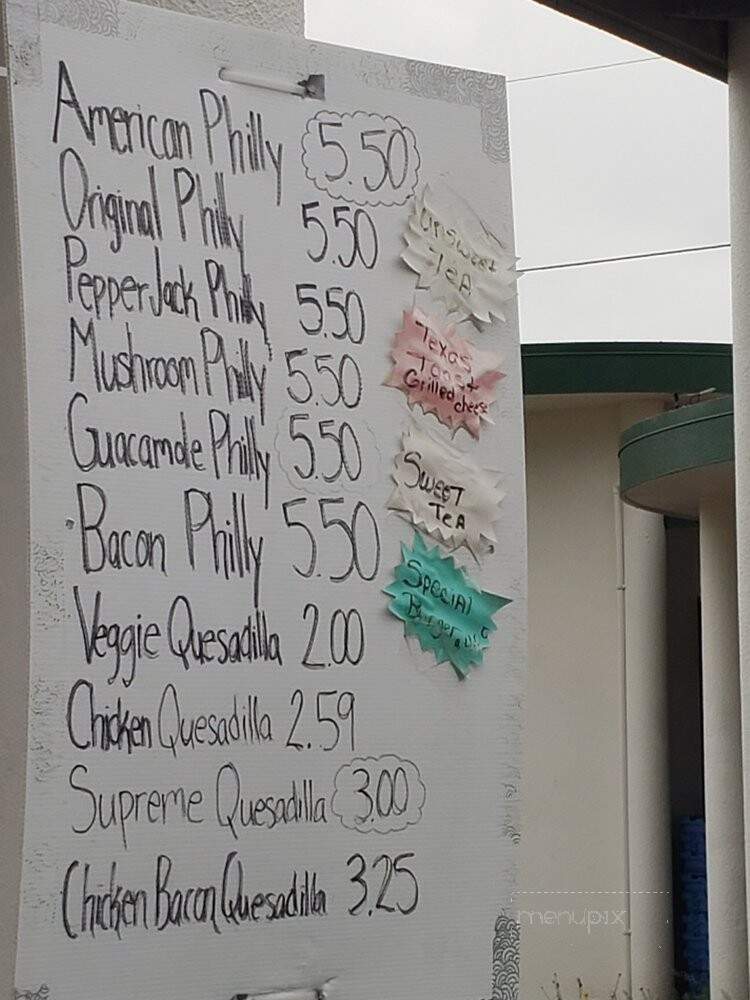 American Philly 5.50
Original Philly 5.50
PepperJack Philly 5.50
Mushroom Philly 5.50
Guacamole Philly 5.50
Bacon Philly 5.50
Veggie Quesadilla 2.00
Chicken Quesadilla 2.59
Supreme Quesadilla 3.00
Chicken Bacon Quesadilla 3.25
UnSweet
TeA
Texas
Toast
Grilled cheese
SWEET
TeA
SpeciAl
menupix